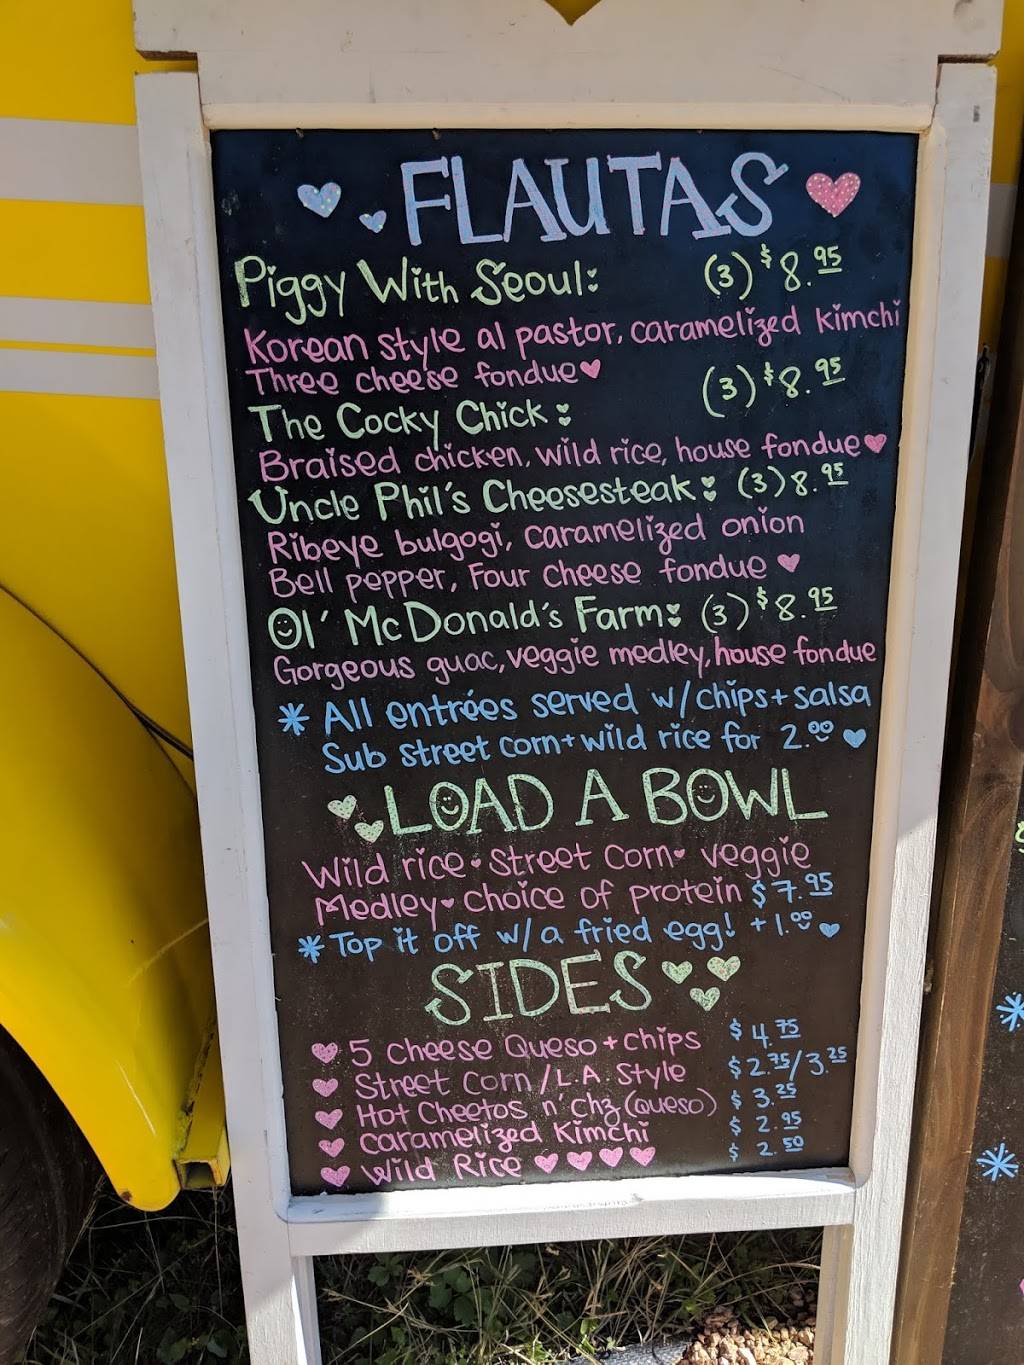 FLAUTAS
Piggy With Seoul: (3) $8.95
Korean style al pastor, caramelized kimchi
Three cheese fondue
The Cocky Chick: (3) $8.95
Braised chicken, wild rice, house fondue
Uncle Phil's Cheesesteak: (3) 8.95
Ribeye bulgogi, caramelized onion
Bell pepper, Four cheese fondue
Ol' McDonald's Farm: (3) $8.95
Gorgeous guac, veggie medley, house fondue
* All entrées served w/chips + salsa
Sub street corn + wild rice for 2.00
LOAD A BOWL
Wild rice • Street Corn • veggie
Medley • choice of protein $7.95
* Top it off w/ a fried egg! +1.00
SIDES
5 Cheese Queso + chips $4.75
Street Corn/L.A Style $2.75/3.25
Hot Cheetos n' Chz (Queso) $3.25
Caramelized Kimchi $2.95
Wild Rice $2.50